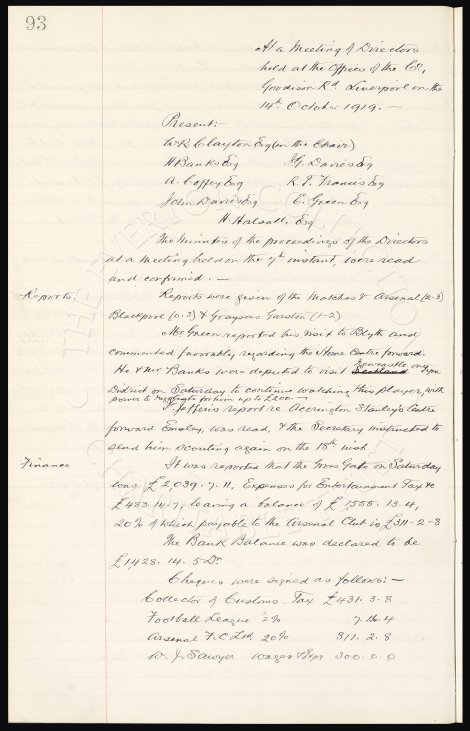 93
At a Meeting of Directors
held at the Offices of the Co,
Goodison Rd Liverpool on the
14th October 1919. —
Present:—
W. R. Clayton Esq (in the Chair)
H Banks Esq J. G. Davies Esq
A. Coffey Esq R. T. Francis Esq
John Davies Esq E. Green Esq
H. Halsall. Esq
The Minutes of the proceedings of the Directors
at a meeting held on the 7th instant, were read
and confirmed. —
Reports. Reports were given of the Matches v Arsenal (2.3)
Blackpool (0.3) & Graysons Garston (1-2)
Mr. Green reported his visit to Blyth and
commented favorably regarding the Home Centre forward.
He & Mr Banks were deputed to visit Newcastle on Tyne
District on Saturday to continue watching this player, with
power to negotiate for him up to £200.—
T. Jefferis report re Accrington Stanley's Centre
forward Ensley, was read, & the Secretary instructed to
send him scouting again on the 18th inst
Finance It was reported that the Gross Gate on Saturday
was £2,039. 7. 11, Expenses for Entertainment Tax &c
£483. 14. 7, leaving a balance of £1555. 13. 4,
20% of which payable to the Arsenal Club is £311-2-8
The Bank Balance was declared to be
£1,428. 14. 5 Dr.
Cheques were signed as follows:—
Collector of Customs. Tax £431. 3. 8
Football League 2% 7. 16. 4
Arsenal F. C Ltd 20% 311. 2. 8
W. J. Sawyer Wages & Exps 300. 0. 0